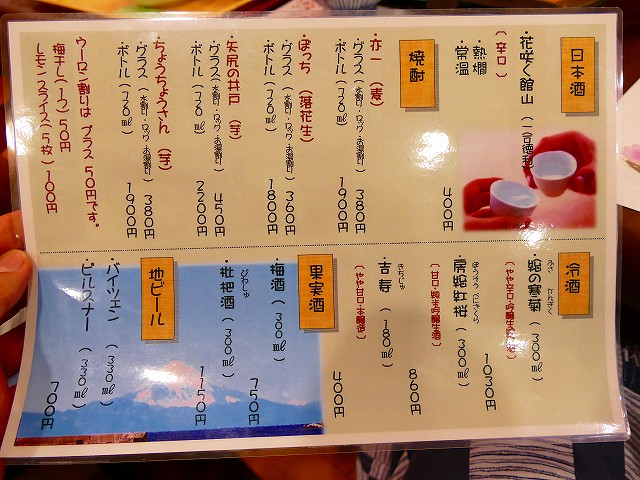 日本酒
・花咲く館山（二合徳利）
（辛口）
・熱燗
・常温
400円
焼酎
・亦一（麦）
・グラス（水割り・ロック・お湯割り） 380円
・ボトル（720㎖） 1900円
・ぼっち（落花生）
・グラス（水割り・ロック・お湯割り） 360円
・ボトル（720㎖） 1800円
・矢尻の井戸（芋）
・グラス（水割り・ロック・お湯割り） 450円
・ボトル（720㎖） 2200円
・ちょうちょうさん（芋）
・グラス（水割り・ロック・お湯割り） 380円
・ボトル（720㎖） 1900円
ウーロン割りは プラス 50円です。
梅干し（一つ）50円
レモンスライス（5枚）100円
冷酒
ふさ かんぎく
・総の寒菊（300㎖） 1030円
（やや辛口・吟醸生貯蔵酒）
ぼうそう べにざくら
・房総紅桜（300㎖） 860円
（甘口・純米吟醸生酒）
きちじゅ
・吉寿（180㎖） 400円
（やや甘口・本醸造）
果実酒
・梅酒（300㎖） 750円
びわしゅ
・枇杷酒（300㎖） 1150円
地ビール
・バイツェン（330㎖）
・ピルスナー（330㎖）
700円